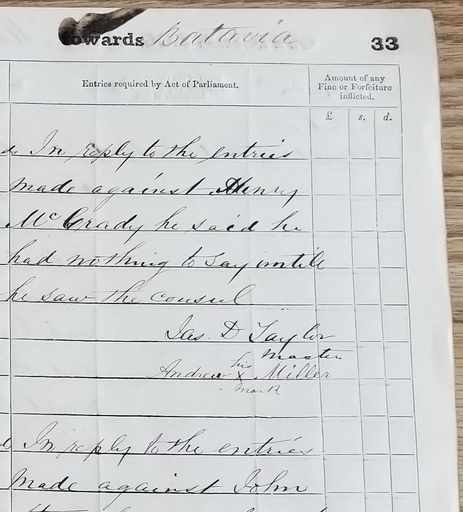 towards Batavia 33
Entries required by Act of Parliament.
Amount of any
Fine or Forfeiture
inflicted.
£ s. d.
In reply to the entries
made against Henry
McGrady he said he
had nothing to say untill
he saw the consul
Jas. D Taylor
Master
Andrew his X mark Miller
In reply to the entries
made against John